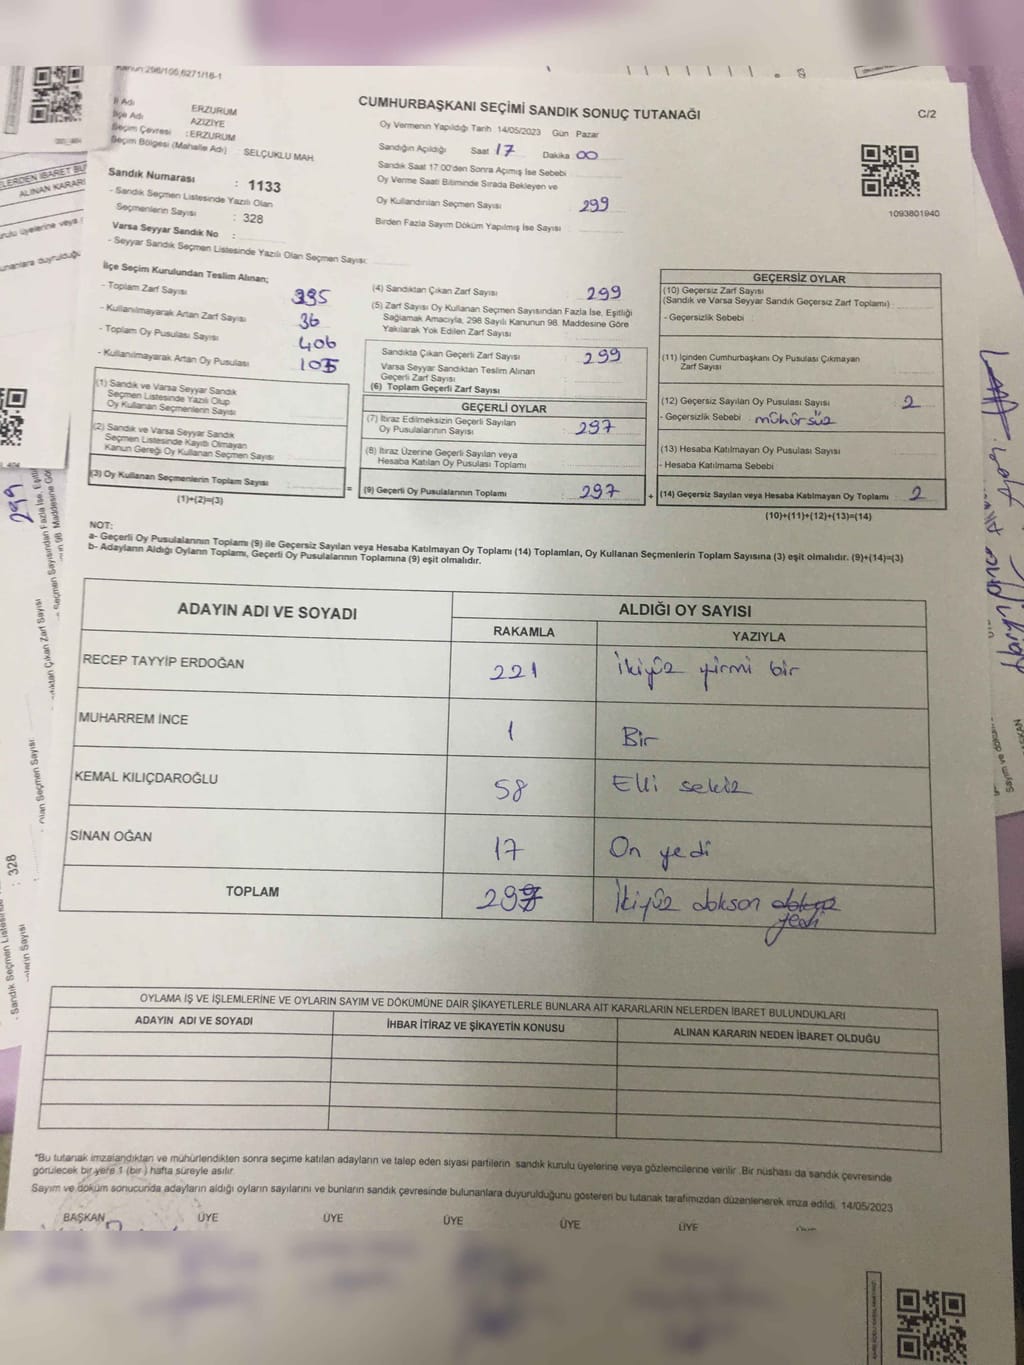 Kanun:298/105,6271/16-1
CUMHURBAŞKANI SEÇİMİ SANDIK SONUÇ TUTANAĞI
C/2
İl Adı ERZURUM
İlçe Adı AZİZİYE
Seçim Çevresi :ERZURUM
Seçim Bölgesi (Mahalle Adı) SELÇUKLU MAH.
Sandık Numarası : 1133
- Sandık Seçmen Listesinde Yazılı Olan
Seçmenlerin Sayısı : 328
Varsa Seyyar Sandık No :
- Seyyar Sandık Seçmen Listesinde Yazılı Olan Seçmen Sayısı:
Oy Vermenin Yapıldığı Tarih 14/05/2023 Gün Pazar
Sandığın Açıldığı Saat 17 Dakika 00
Sandık Saat 17:00'den Sonra Açımış İse Sebebi
Oy Verme Saati Bitiminde Sırada Bekleyen ve
Oy Kullandırılan Seçmen Sayısı 299
Birden Fazla Sayım Döküm Yapılmış İse Sayısı
1093801940
İlçe Seçim Kurulundan Teslim Alınan;
- Toplam Zarf Sayısı 335
- Kullanılmayarak Artan Zarf Sayısı 36
- Toplam Oy Pusulası Sayısı 406
- Kullanılmayarak Artan Oy Pusulası 105
(1) Sandık ve Varsa Seyyar Sandık
Seçmen Listesinde Yazılı Olup
Oy Kullanan Seçmenlerin Sayısı
(2) Sandık ve Varsa Seyyar Sandık
Seçmen Listesinde Kayıtlı Olmayan
Kanun Gereği Oy Kullanan Seçmen Sayısı
(3) Oy Kullanan Seçmenlerin Toplam Sayısı
(1)+(2)=(3)
(4) Sandıktan Çıkan Zarf Sayısı 299
(5) Zarf Sayısı Oy Kullanan Seçmen Sayısından Fazla İse, Eşitliği
Sağlamak Amacıyla, 298 Sayılı Kanunun 98. Maddesine Göre
Yakılarak Yok Edilen Zarf Sayısı
Sandıkta Çıkan Geçerli Zarf Sayısı 299
Varsa Seyyar Sandıktan Teslim Alınan
Geçerli Zarf Sayısı
(6) Toplam Geçerli Zarf Sayısı
GEÇERLİ OYLAR
(7) İtiraz Edilmeksizin Geçerli Sayılan
Oy Pusulalarının Sayısı 297
(8) İtiraz Üzerine Geçerli Sayılan veya
Hesaba Katılan Oy Pusulası Toplamı
= (9) Geçerli Oy Pusulalarının Toplamı 297 +
GEÇERSİZ OYLAR
(10) Geçersiz Zarf Sayısı
(Sandık ve Varsa Seyyar Sandık Geçersiz Zarf Toplamı)
- Geçersizlik Sebebi :
(11) İçinden Cumhurbaşkanı Oy Pusulası Çıkmayan
Zarf Sayısı
(12) Geçersiz Sayılan Oy Pusulası Sayısı 2
- Geçersizlik Sebebi mühürsüz
(13) Hesaba Katılmayan Oy Pusulası Sayısı
- Hesaba Katılmama Sebebi
(14) Geçersiz Sayılan veya Hesaba Katılmayan Oy Toplamı 2
(10)+(11)+(12)+(13)=(14)
NOT:
a- Geçerli Oy Pusulalarının Toplamı (9) ile Geçersiz Sayılan veya Hesaba Katılmayan Oy Toplamı (14) Toplamları, Oy Kullanan Seçmenlerin Toplam Sayısına (3) eşit olmalıdır. (9)+(14)=(3)
b- Adayların Aldığı Oyların Toplamı, Geçerli Oy Pusulalarının Toplamına (9) eşit olmalıdır.
ADAYIN ADI VE SOYADI ALDIĞI OY SAYISI
RAKAMLA YAZIYLA
RECEP TAYYİP ERDOĞAN 221 İkiyüz yirmi bir
MUHARREM İNCE 1 Bir
KEMAL KILIÇDAROĞLU 58 Elli sekiz
SİNAN OĞAN 17 On yedi
TOPLAM 297 İkiyüz dokson
yedi
OYLAMA İŞ VE İŞLEMLERİNE VE OYLARIN SAYIM VE DÖKÜMÜNE DAİR ŞİKAYETLERLE BUNLARA AİT KARARLARIN NELERDEN İBARET BULUNDUKLARI
ADAYIN ADI VE SOYADI İHBAR İTİRAZ VE ŞİKAYETİN KONUSU ALINAN KARARIN NEDEN İBARET OLDUĞU
*Bu tutanak imzalandıktan ve mühürlendikten sonra seçime katılan adayların ve talep eden siyasi partilerin sandık kurulu üyelerine veya gözlemcilerine verilir .Bir nüshası da sandık çevresinde
görülecek bir yere 1 (bir ) hafta süreyle asılır.
Sayım ve döküm sonucunda adayların aldığı oyların sayılarını ve bunların sandık çevresinde bulunanlara duyurulduğunu gösteren bu tutanak tarafımızdan düzenlenerek imza edildi. 14/05/2023
BAŞKAN ÜYE ÜYE ÜYE ÜYE ÜYE